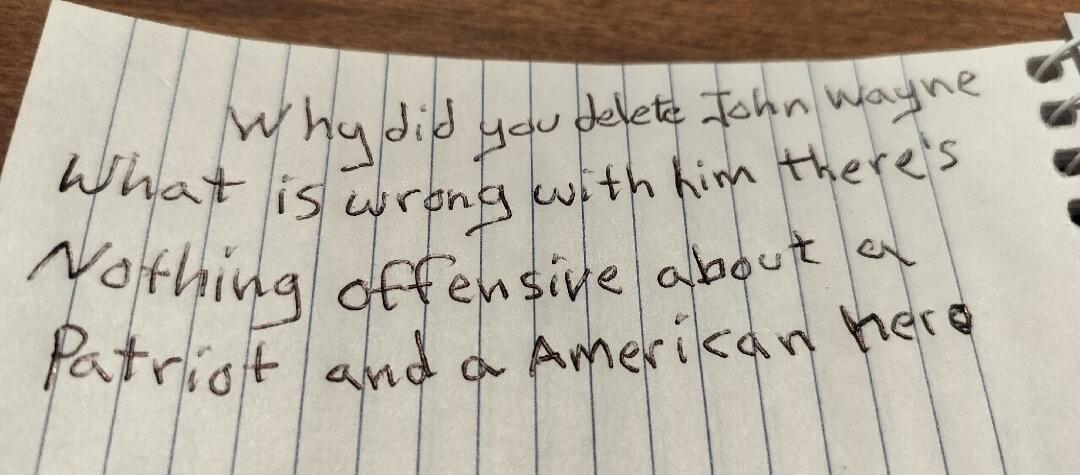 Why did you delete John Wayne
What is wrong with him there's
Nothing offensive about a
Patriot and a American hero